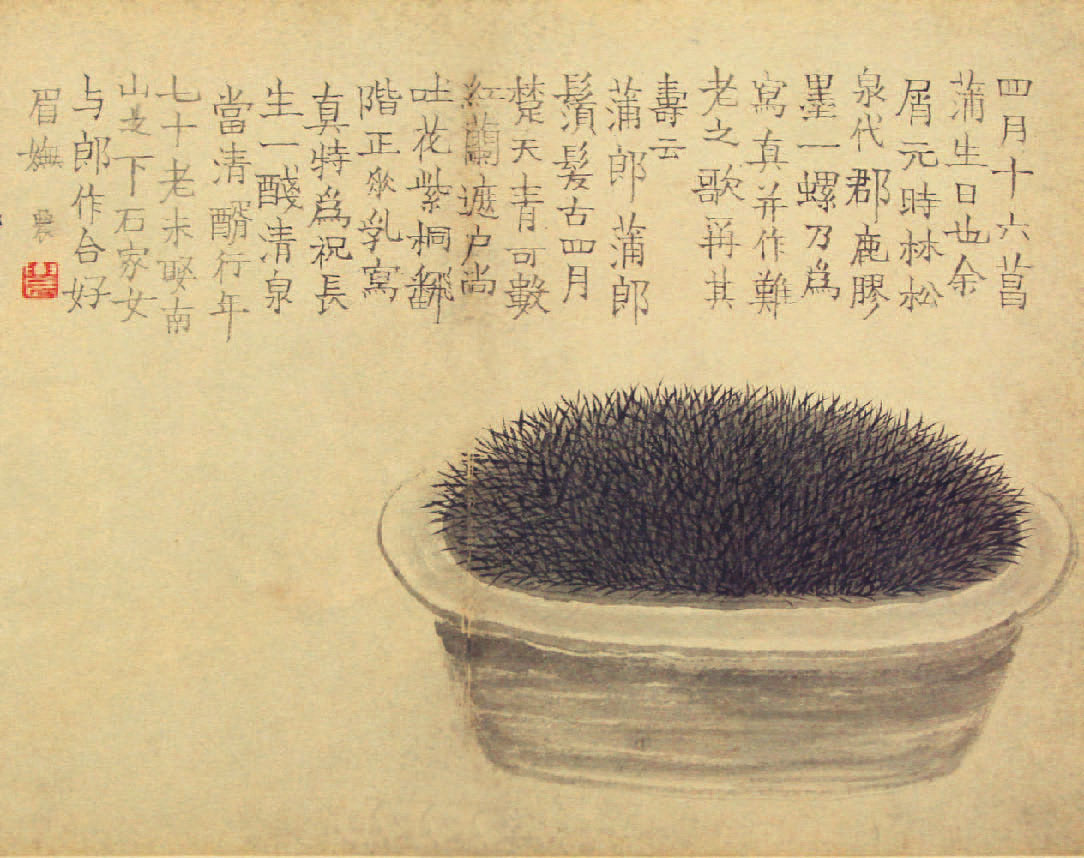 四月十六菖
蒲生日也余
屑元時林松
泉代郡鹿膠
墨一螺乃爲
寫真并作難
老之歌爯其
壽云
蒲郎蒲郎
鬚髮古四月
楚天青可數
紅蘭遮户尚
吐花紫桐翻
階正乳寫
真特爲祝長
生一醆清泉
當清醑行年
七十老未娶南
山之下石家女
与郎作合好
眉嫵 農